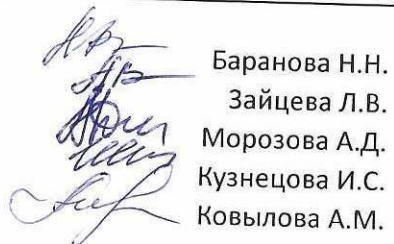 Баранова Н.Н.
Зайцева Л.В.
Морозова А.Д.
Кузнецова И.С.
Ковылова А.М.